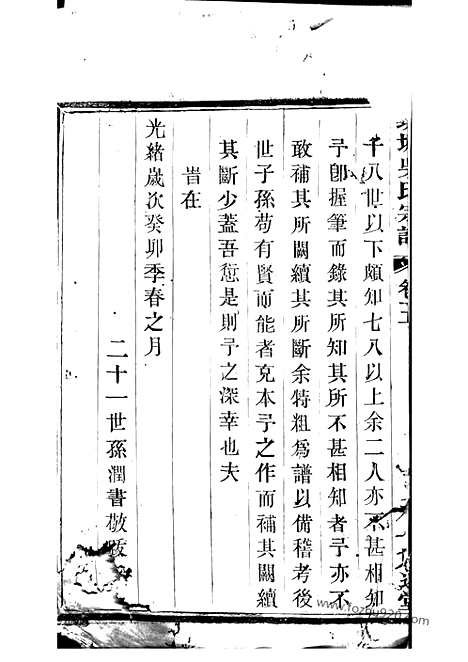 氏宗譜 卷五
千八世以下頗知七八以上余二人亦不甚相知
予卽握筆而錄其所知其所不甚相知者予亦不
敢補其所闕續其所斷余特粗爲譜以備稽考後
世子孫苟有賢而能者克本予之作而補其闕續
其斷少蓋吾愆是則予之深幸也夫
旹在
光緒歲次癸卯季春之月
二十一世孫潤書敬